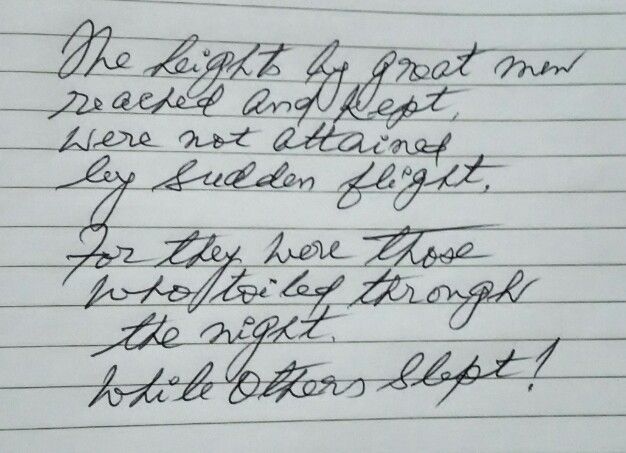 The heights by great men
reached and kept,
were not attained
by sudden flight.
For they were those
who toiled through
the night.
While others slept!